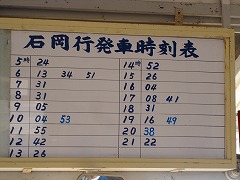 石岡行発車時刻表
5時 24
6 13 34 51
7 31
8 31
9 05
10 04 53
11 55
12 42
13 26
14時 52
15 26
16 04
17 08 41
18 31
19 16 49
20 38
21 22